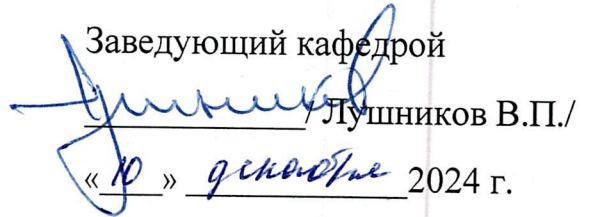 Заведующий кафедрой
Лушников / Лушников В.П./
«10» декабря 2024 г.